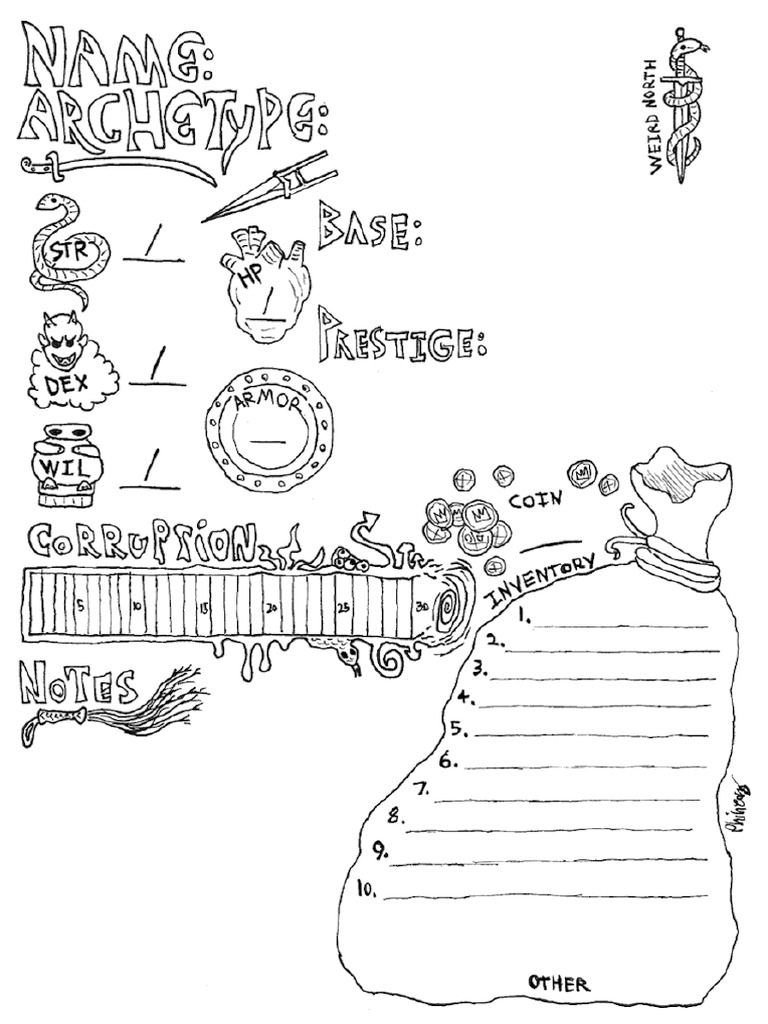 NAME:
ARCHETYPE:
WEIRD NORTH
STR /
DEX /
WIL /
HP /
BASE:
PRESTIGE:
ARMOR
CORRUPTION
5 10 15 20 25 30
NOTES
COIN
INVENTORY
1.
2.
3.
4.
5.
6.
7.
8.
9.
10.
OTHER